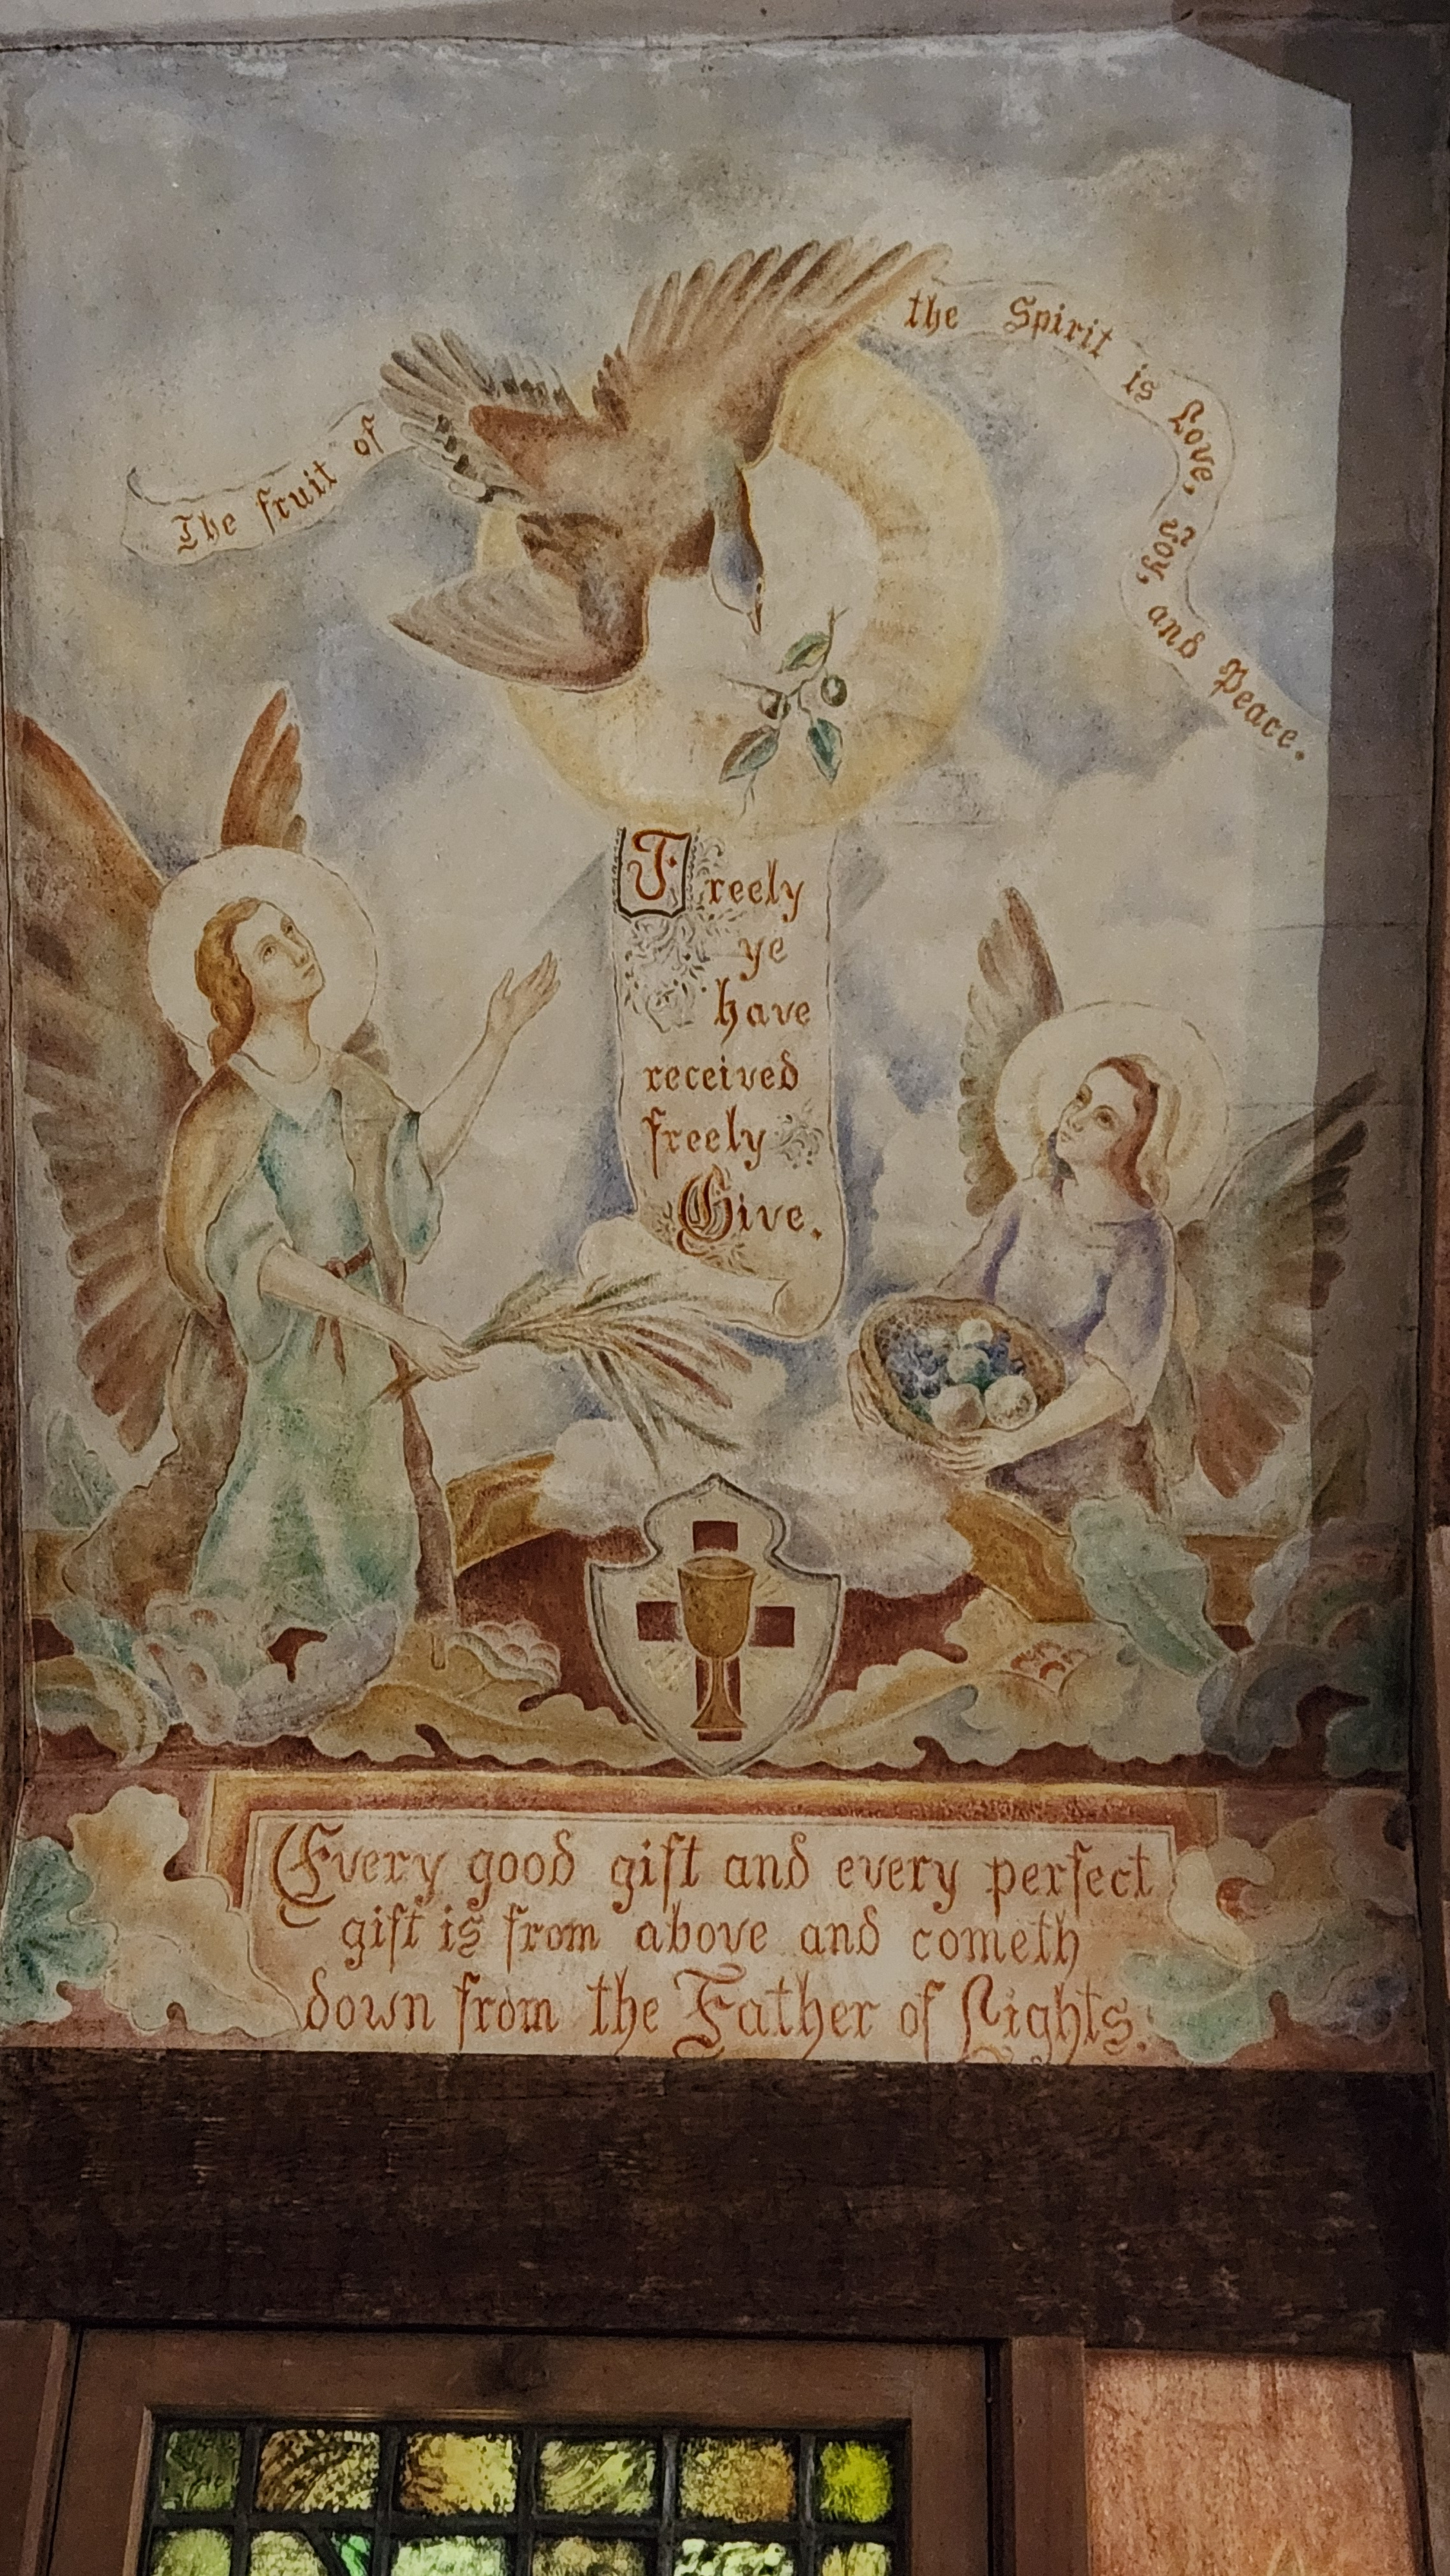 The fruit of the Spirit is Love, Joy, and Peace.
Freely
ye
have
received
freely
Give.
Every good gift and every perfect
gift is from above and cometh
down from the Father of Lights.